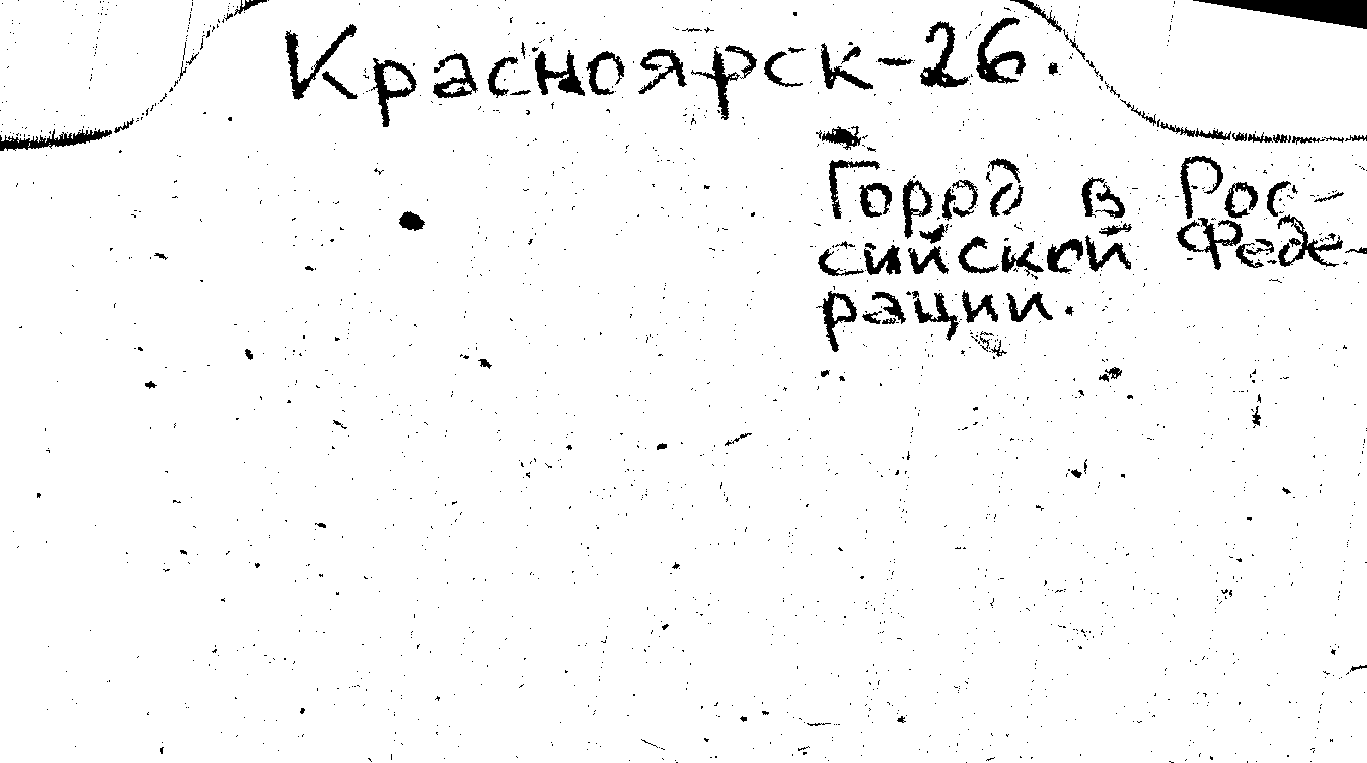 Красноярск-26.
Город в Рос-
сийской Феде-
рации.